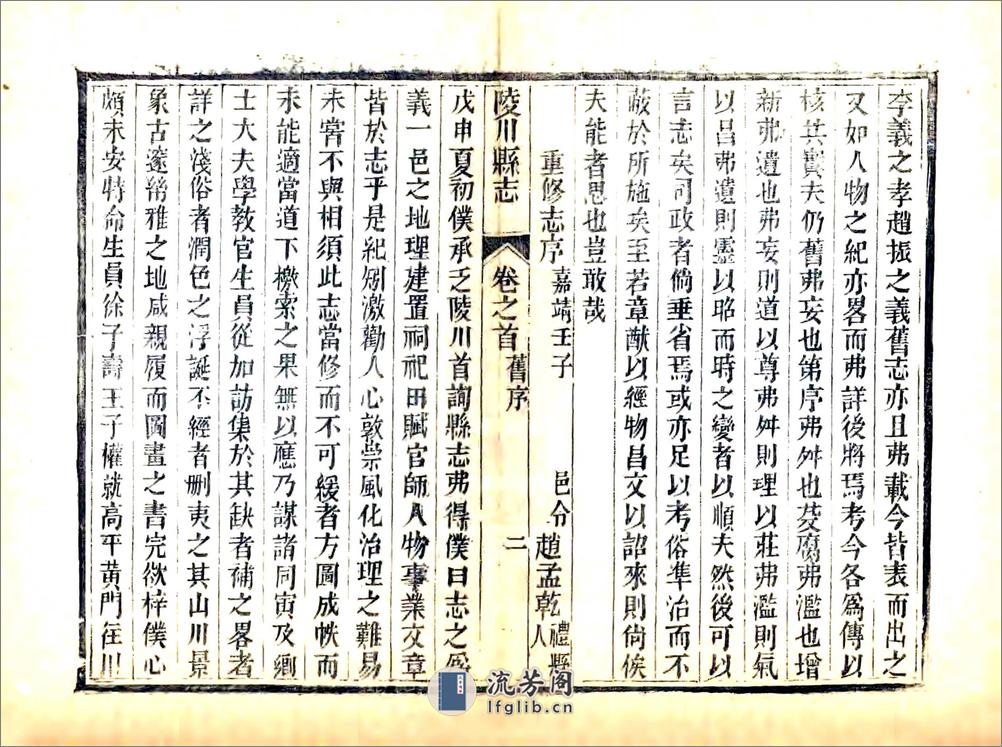 李義之孝趙振之義舊志亦且弗載今皆表而出之
又如人物之紀亦畧而弗詳後將焉考今各爲傳以
核其實夫仍舊弗妄也第序弗舛也芟腐弗濫也增
新弗遺也弗妄則道以尊弗舛則理以莊弗濫則氣
以昌弗遺則靈以昭而時之變者以順夫然後可以
言志矣司政者倘垂省焉或亦足以考俗準治而不
蔽於所施矣至若章猷以經物昌文以詔來則尙俟
夫能者思也豈敢哉
重修志序 嘉靖壬子 邑令 趙孟乾 禮縣人
陵川縣志 卷之首 舊序 二
戊申夏初僕承乏陵川首詢縣志弗得僕曰志之爲
義一邑之地理建置祠祀田賦官師人物事業文章
皆於志乎是紀矧激勸人心敦崇風化治理之難易
未嘗不與相須此志當修而不可緩者方圖成帙而
未能適當道下檄索之果無以應乃謀諸同寅及鄉
士大夫學教官生員從加訪集於其缺者補之畧者
詳之淺俗者潤色之浮誕不經者删夷之其山川景
象古邃辯雅之地咸親履而圖畫之書完欲梓僕心
頗未安特命生員徐子壽王子權就高平黃門在川
流芳阁
lfglib.cn